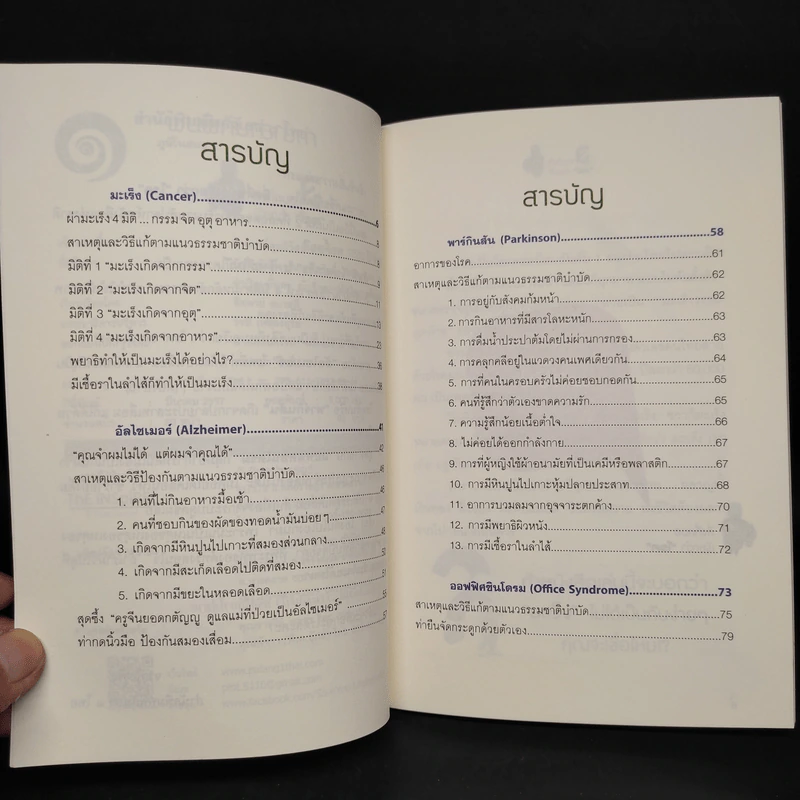 สารบัญ
มะเร็ง (Cancer)........................................6
ผ่ามะเร็ง 4 มิติ ... กรรม จิต อุตุ อาหาร
สาเหตุและวิธีแก้ตามแนวธรรมชาติบำบัด
มิติที่ 1 "มะเร็งเกิดจากกรรม"
มิติที่ 2 "มะเร็งเกิดจากจิต"
มิติที่ 3 "มะเร็งเกิดจากอุตุ"
มิติที่ 4 "มะเร็งเกิดจากอาหาร"
พยาธิทำให้เป็นมะเร็งได้อย่างไร?
มีเชื้อราในลำไส้ก็ทำให้เป็นมะเร็ง
อัลไซเมอร์ (Alzheimer)........................................41
"คุณจำผมไม่ได้ แต่ผมจำคุณได้"........................................42
สาเหตุและวิธีป้องกันตามแนวธรรมชาติบำบัด
1. คนที่ไม่กินอาหารมื้อเช้า
2. คนที่ชอบกินของผัดของทอดน้ำมันบ่อยๆ
3. เกิดจากมีหินปูนไปเกาะที่สมองส่วนกลาง
4. เกิดจากมีสะเก็ดเลือดไปติดที่สมอง
5. เกิดจากมีขยะในหลอดเลือด
สุดซึ้ง "ครูจีนยอดกตัญญู ดูแลแม่ที่ป่วยเป็นอัลไซเมอร์"
ท่ากดนิ้วมือ ป้องกันสมองเสื่อม
สารบัญ
พาร์กินสัน (Parkinson)........................................58
อาการของโรค........................................61
สาเหตุและวิธีแก้ตามแนวธรรมชาติบำบัด........................................62
1. การอยู่กับสังคมก้มหน้า........................................62
2. การกินอาหารที่มีสารโลหะหนัก........................................63
3. การดื่มน้ำประปาต้มโดยไม่ผ่านการกรอง........................................63
4. การคลุกคลีอยู่ในแวดวงคนเพศเดียวกัน........................................64
5. การที่คนในครอบครัวไม่ค่อยชอบกอดกัน........................................65
6. คนที่รู้สึกว่าตัวเองขาดความรัก........................................65
7. ความรู้สึกน้อยเนื้อต่ำใจ........................................66
8. ไม่ค่อยได้ออกกำลังกาย........................................67
9. การที่ผู้หญิงใช้ผ้าอนามัยที่เป็นเคมีหรือพลาสติก........................................67
10. การมีหินปูนไปเกาะหุ้มปลายประสาท........................................68
11. อาการบวมลมจากอุจจาระตกค้าง........................................70
12. การมีพยาธิผิวหนัง........................................71
13. การมีเชื้อราในลำไส้........................................72
ออฟฟิศซินโดรม (Office Syndrome)........................................73
สาเหตุและวิธีแก้ตามแนวธรรมชาติบำบัด........................................75
ท่ายืนจัดกระดูกด้วยตัวเอง........................................79